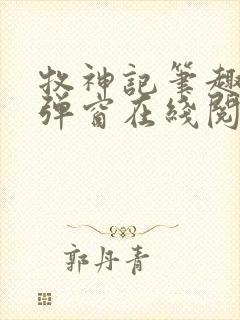 牧神記筆趣
弹窗在綫閱
郭丹青